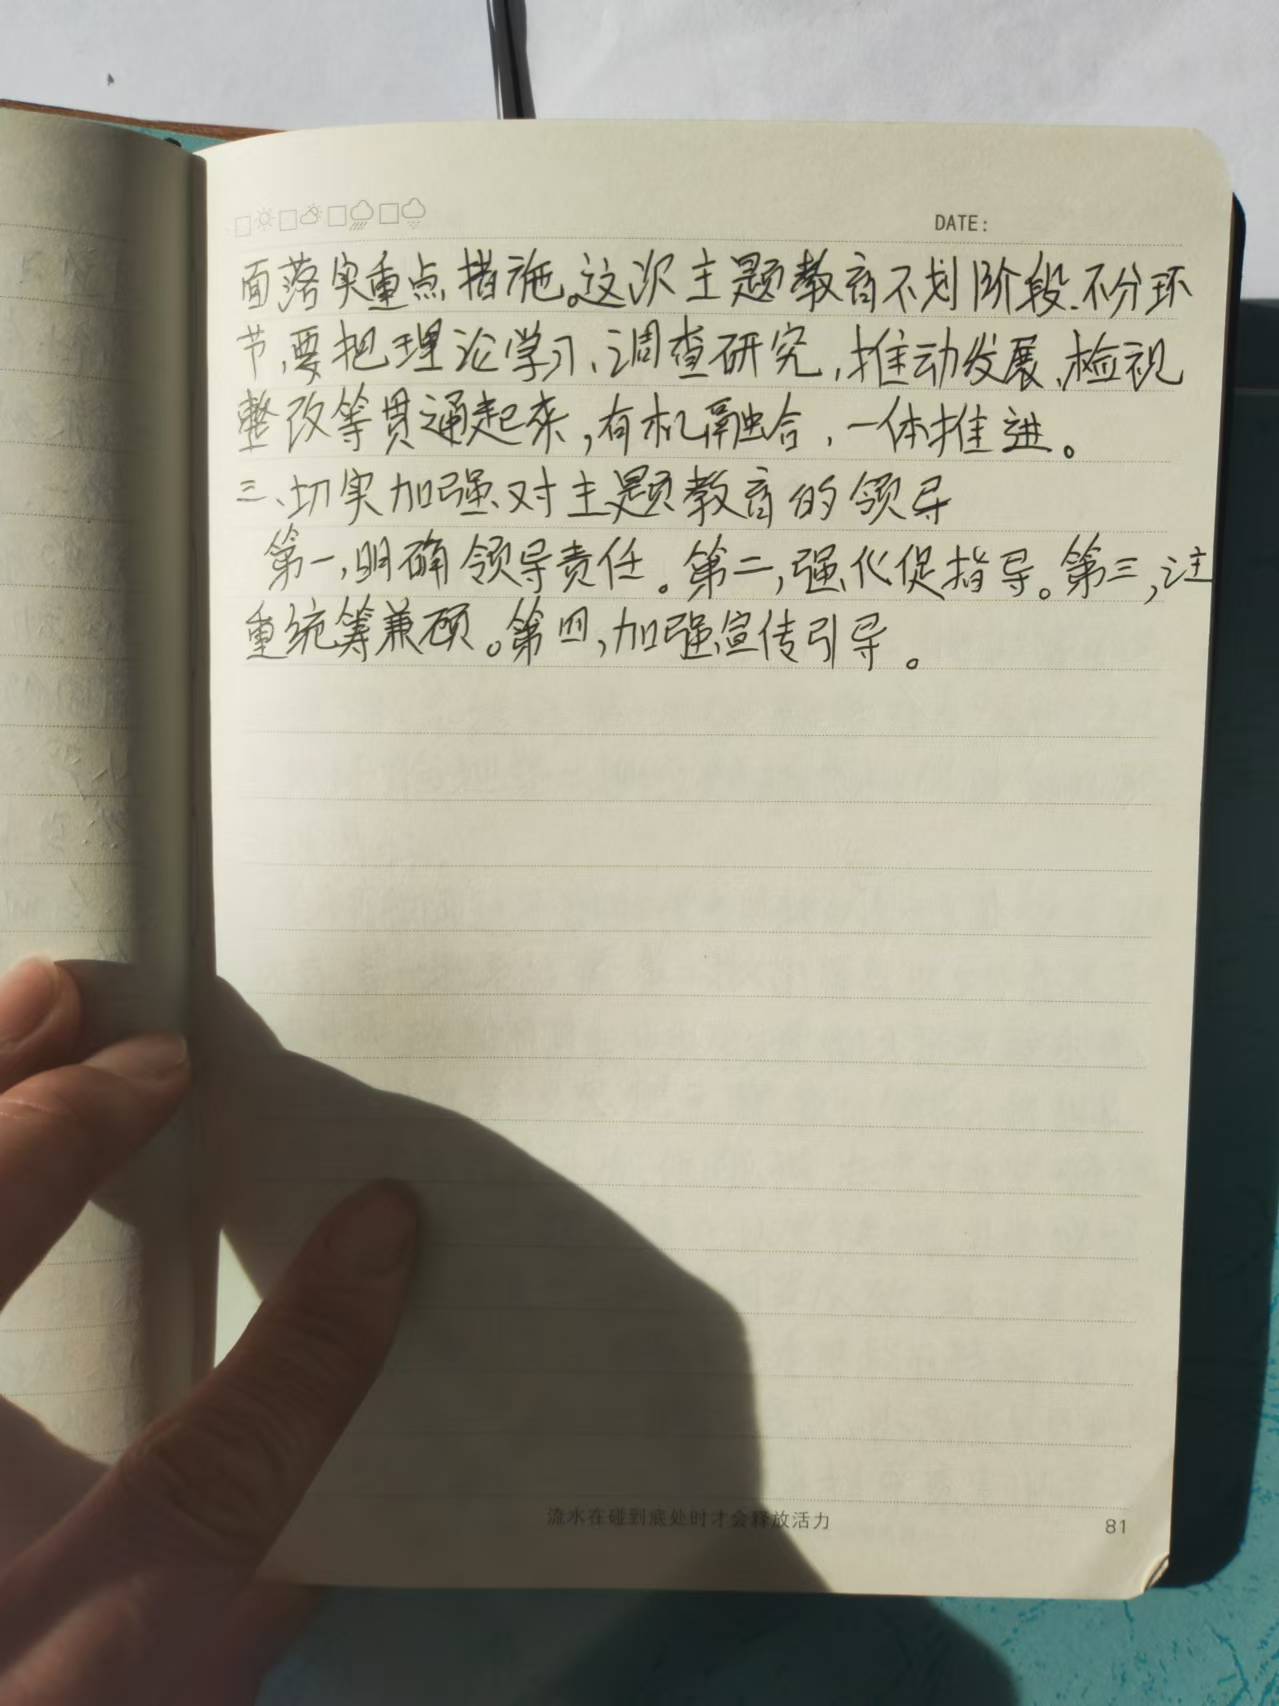 DATE:
面落实重点措施。这次主题教育不划阶段、不分环
节,要把理论学习、调查研究,推动发展、检视
整改等贯通起来,有机融合,一体推进。
三、切实加强对主题教育的领导
第一,明确领导责任。第二,强化促指导。第三,注
重统筹兼顾。第四,加强宣传引导。
流水在碰到底处时才会释放活力
81